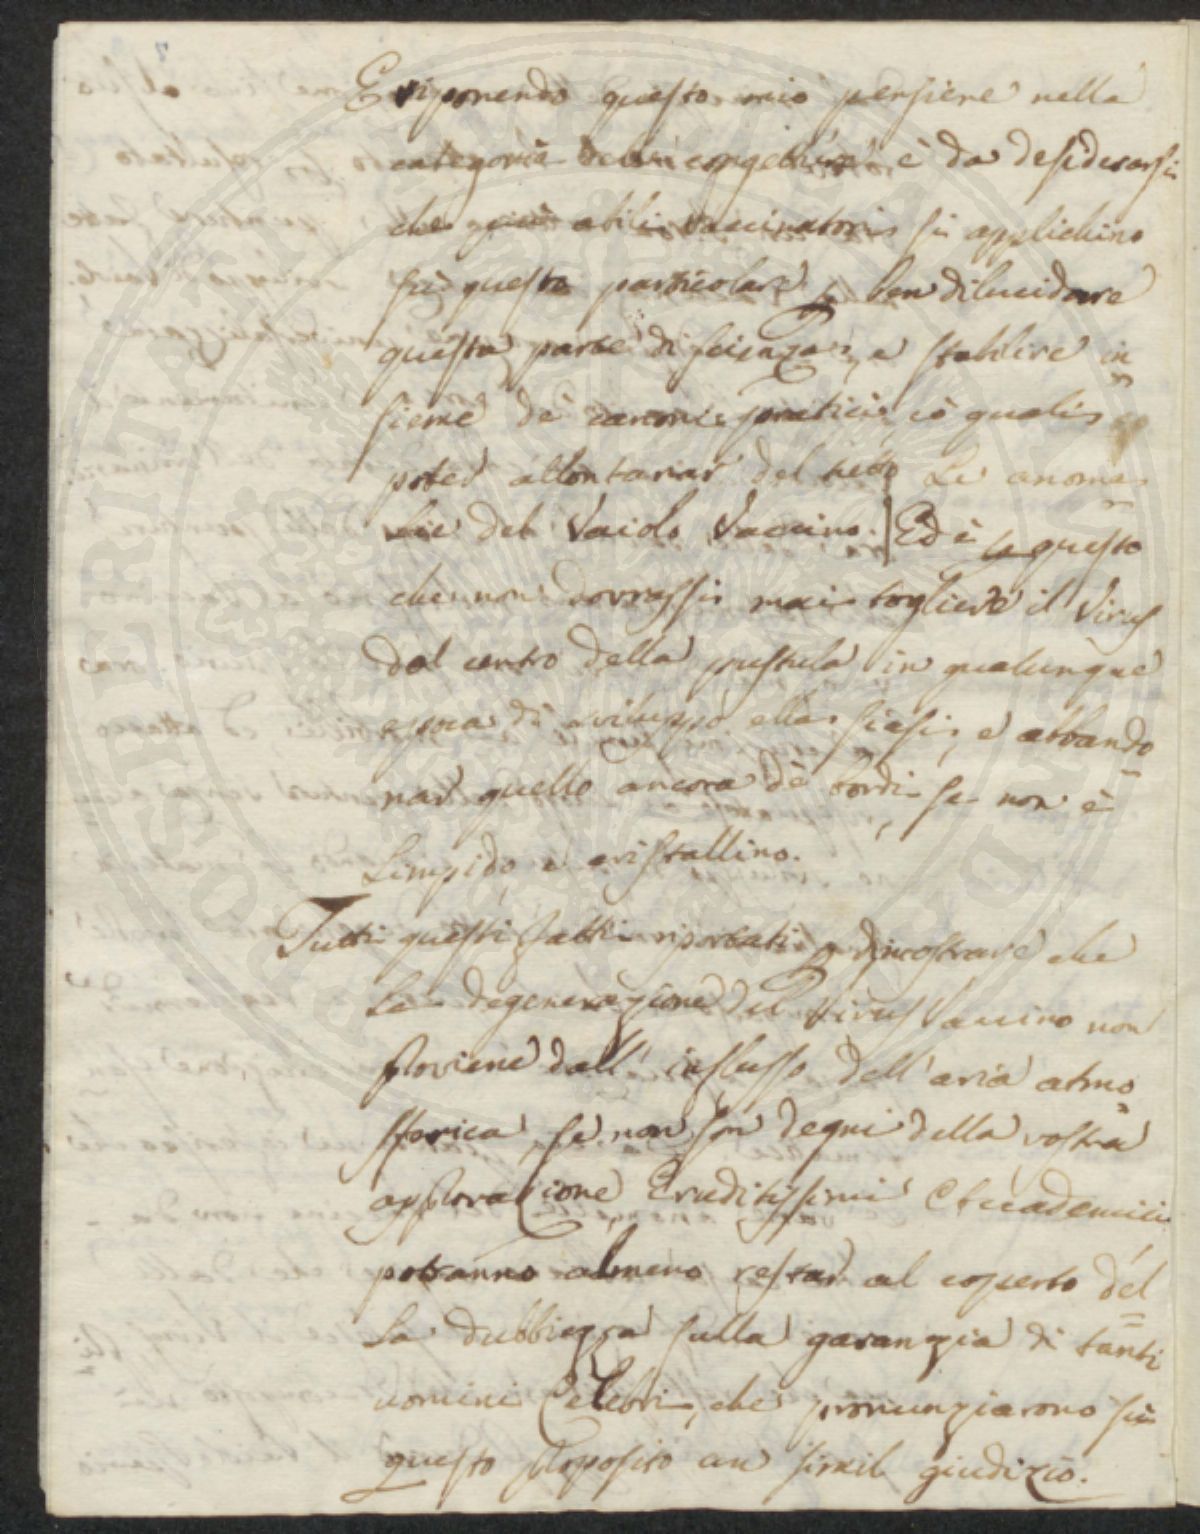 E riponendo questo mio pensiere nella
categoria delle congetture è da desiderarsi
che più abili vaccinatori si applichino
su questo particolare p ben dilucidare
questa parte di scienza, e stabilire in=
sieme de' canoni pratici, i quali
poter allontanar del tutto Le anoma=
lie del Vaiolo Vaccino. Ed è p questo
che non dovrassi mai togliere il Virus
dal centro della pustula in qualunque
epoca di sviluppo ella siasi, e abbando=
nar quello ancora de' bordi se non è
Limpido, e cristallino.
Tutti questi fatti riportati p dimostrare che
La degenerazione del Virus Vaccino non
proviene dall' influsso dell' aria atmo=
sferica, se non son degni della vostra
approvazione, Eruditissimi Accademici
potranno almeno restar al coperto del=
la dubbiezza sulla garanzia di tanti
uomini Celebri, che pronunziarono su
questo proposito un simil giudizio.